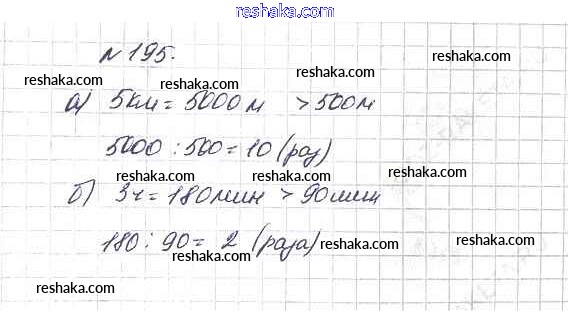 reshaka.com
№ 195.
reshaka.com reshaka.com reshaka.com reshaka.com
а) 5км = 5000м > 500м
reshaka.com reshaka.com
5000 : 500 = 10 (раз)
reshaka.com reshaka.com reshaka.com
б) 3ч = 180мин > 90мин
180 : 90 = 2 (раза)
reshaka.com reshaka.com reshaka.com
reshaka.com